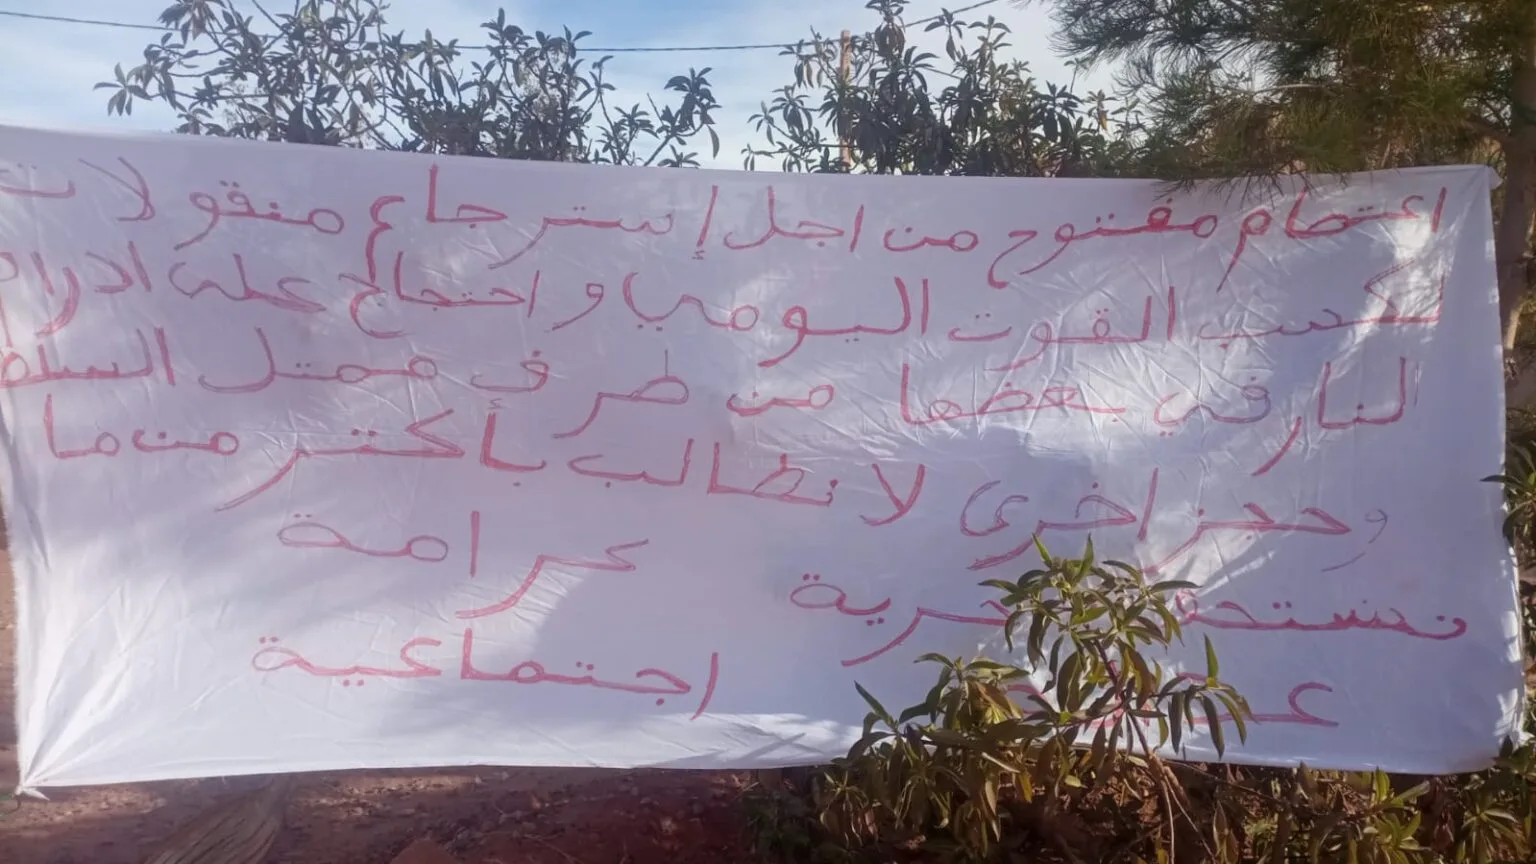 اعتصام مفتوح من اجل إسترجاع منقولات
لكسب القوت اليومي و احتجاج على ادرام
النار في بعضها من طرف ممتل السلط
و حجز اخرى لا نطالب بأكتر من ما
نستحق حرية كرامة
اجتماعية